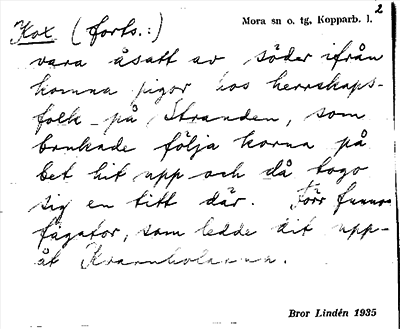 2
Mora sn o. tg, Kopparb. l.
Kox (forts.:)
vara åsatt av söder ifrån
komna pigor hos herrskaps-
folk på Stranden, som
brukade följa korna på
bet hit upp och då togo
sig en titt där. Förr funnos
fägator, som ledde dit upp-
åt Kvarnholarna.
Bror Lindén 1935